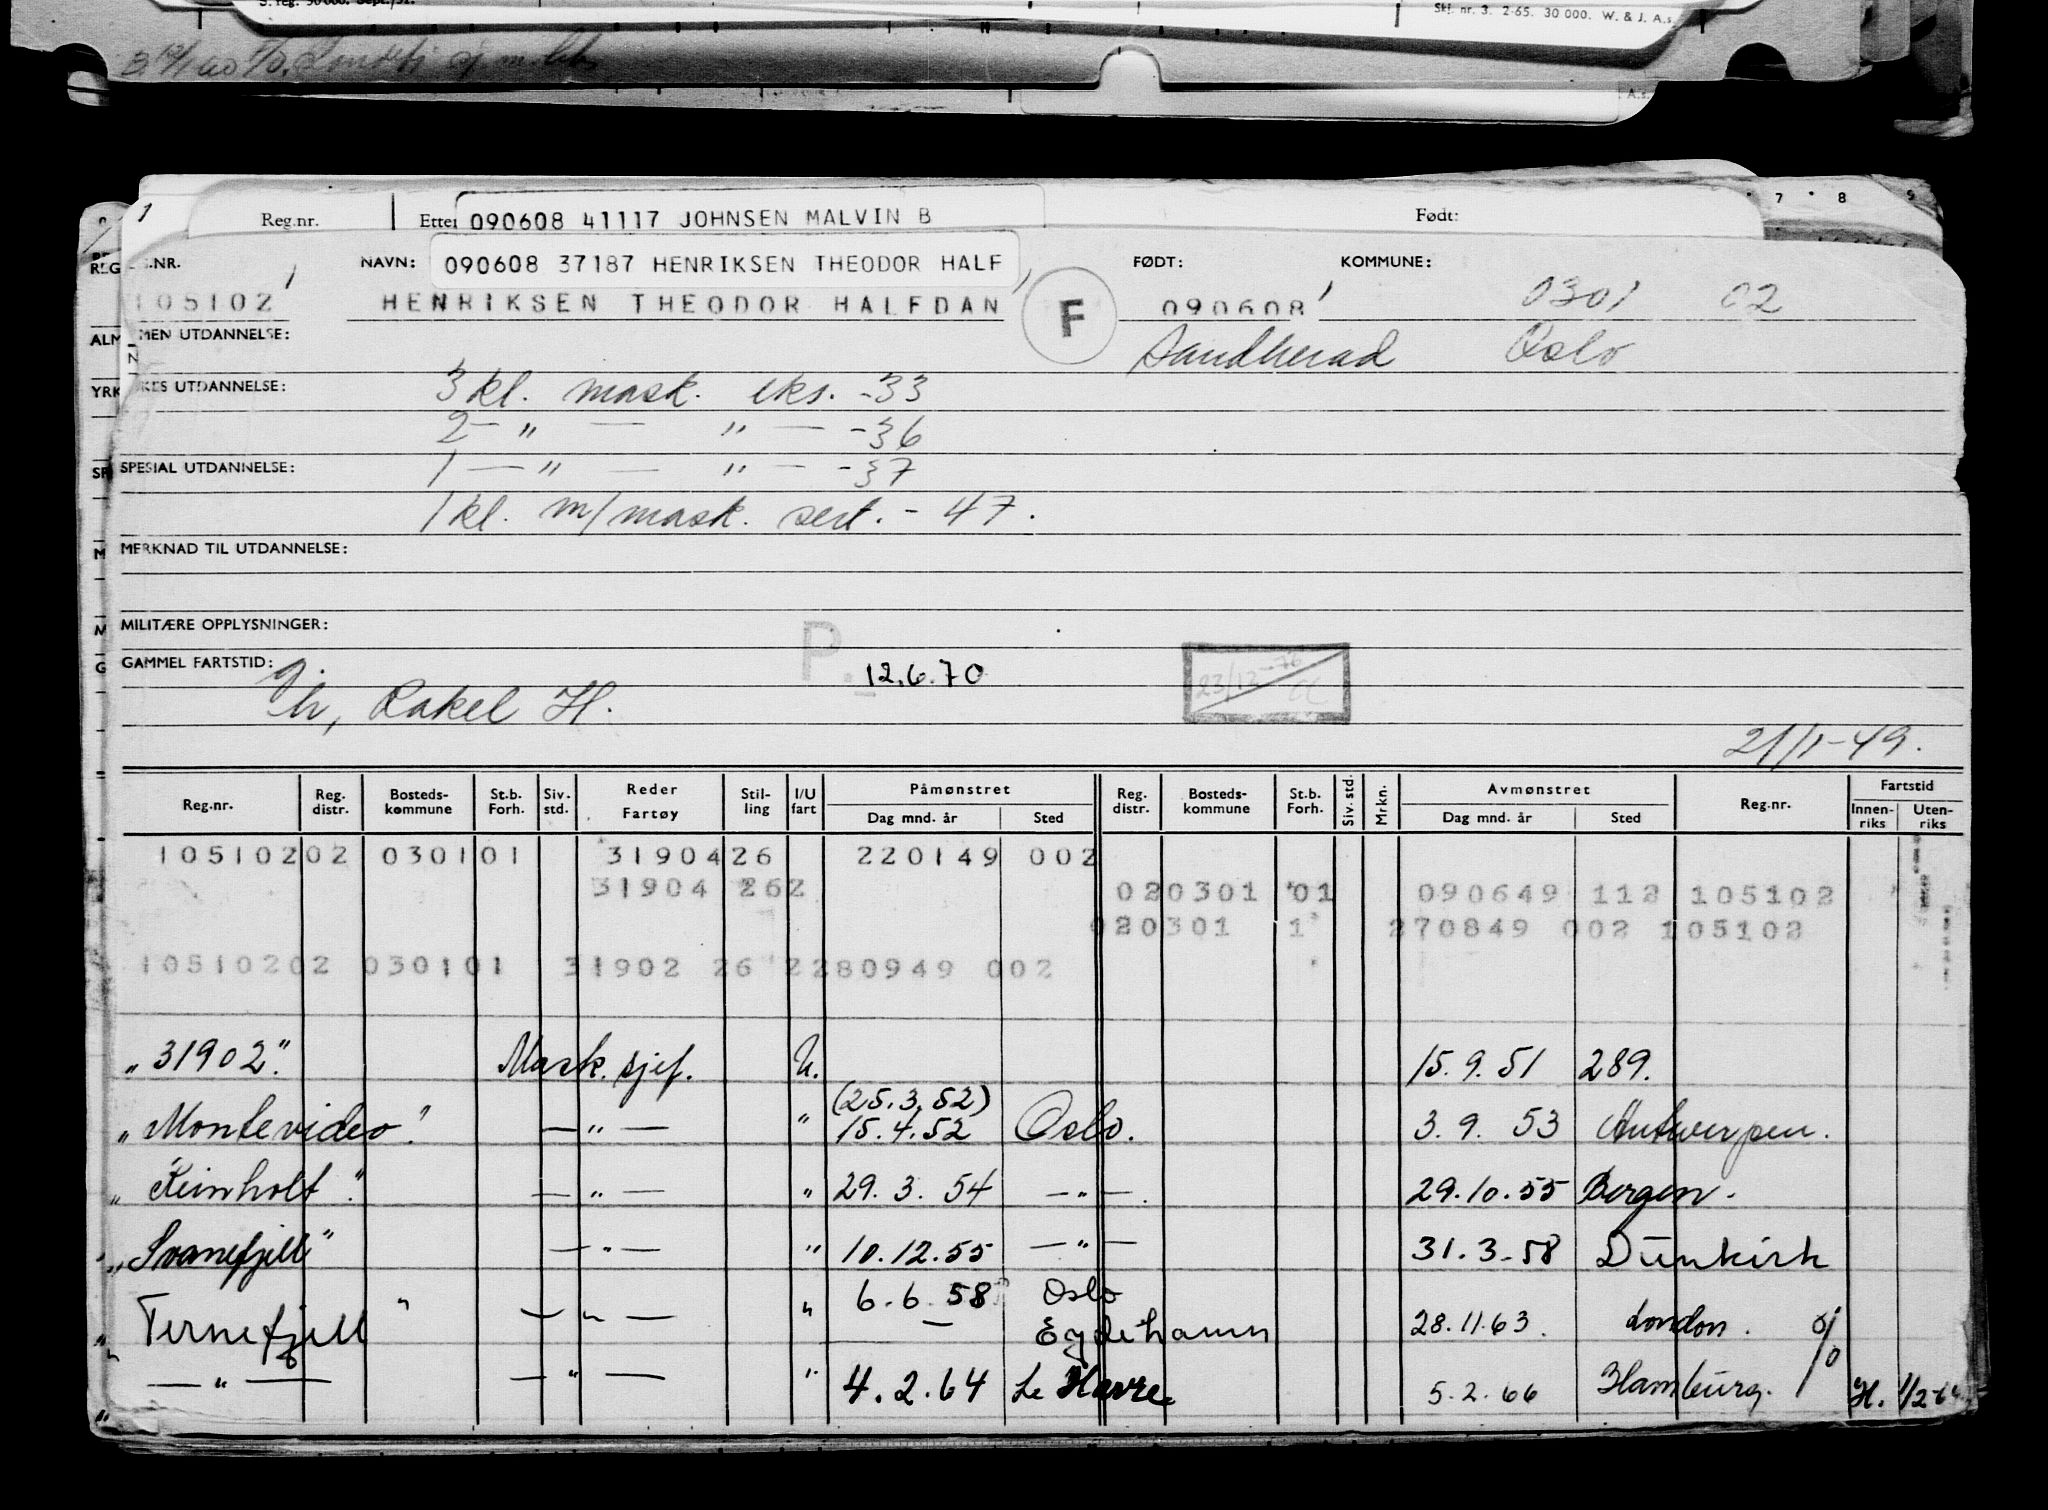 S. reg. 50 000. Sept./52.
Skj. nr. 3. 2-65. 30 000. W. & J. A.s.
A.s.
1 Reg.nr. Etter 090608 41117 JOHNSEN MALVIN B Født: 7 8 9
REG .NR. NAVN: 090608 37187 HENRIKSEN THEODOR HALF FØDT: KOMMUNE:
105102 HENRIKSEN THEODOR HALFDAN F 090608 0301 02
ALM MEN UTDANNELSE: Sandherad Oslo
YRK KES UTDANNELSE: 3 kl. mask. eks. -33
2 — " — " — -36
SPESIAL UTDANNELSE: 1 — " — " — -37
1 kl. m/mask. sert. - 47.
MERKNAD TIL UTDANNELSE:
MILITÆRE OPPLYSNINGER:
GAMMEL FARTSTID: P. 12.6.70 23/12-76
g. h, Rakel H.
21/1-49.
Reg.nr. Reg. distr. Bosteds-kommune St.b. Forh. Siv. std. Reder Fartøy Stil-ling I/U fart Påmønstret Dag mnd. år Sted Reg. distr. Bosteds-kommune St.b. Forh. Siv. std. Mrkn. Avmønstret Dag mnd. år Sted Reg.nr. Fartstid Innen-riks Uten-riks
10510202 030101 3190426 220149 002
31904 262 020301 01 090649 112 105102
020301 1 270849 002 105102
10510202 030101 31902 26 2280949 002
"31902." Mask.sjef. U. 15.9.51 289.
(25.3.52)
"Montevideo." — " — " 15.4.52 Oslo. 3.9.53 Antwerpen.
"Reinholt." — " — " 29.3.54 — " —. 29.10.55 Bergen.
"Svanefjell" — " — " 10.12.55 — " — 31.3-58 Dunkirk
6.6.58 Oslo
"Ternefjell" — " — " — Eydehamn 28.11.63. London.
— " — — " — " 4.2.64 Le Havre 5.2.66 Hamburg. H. 1/2-6